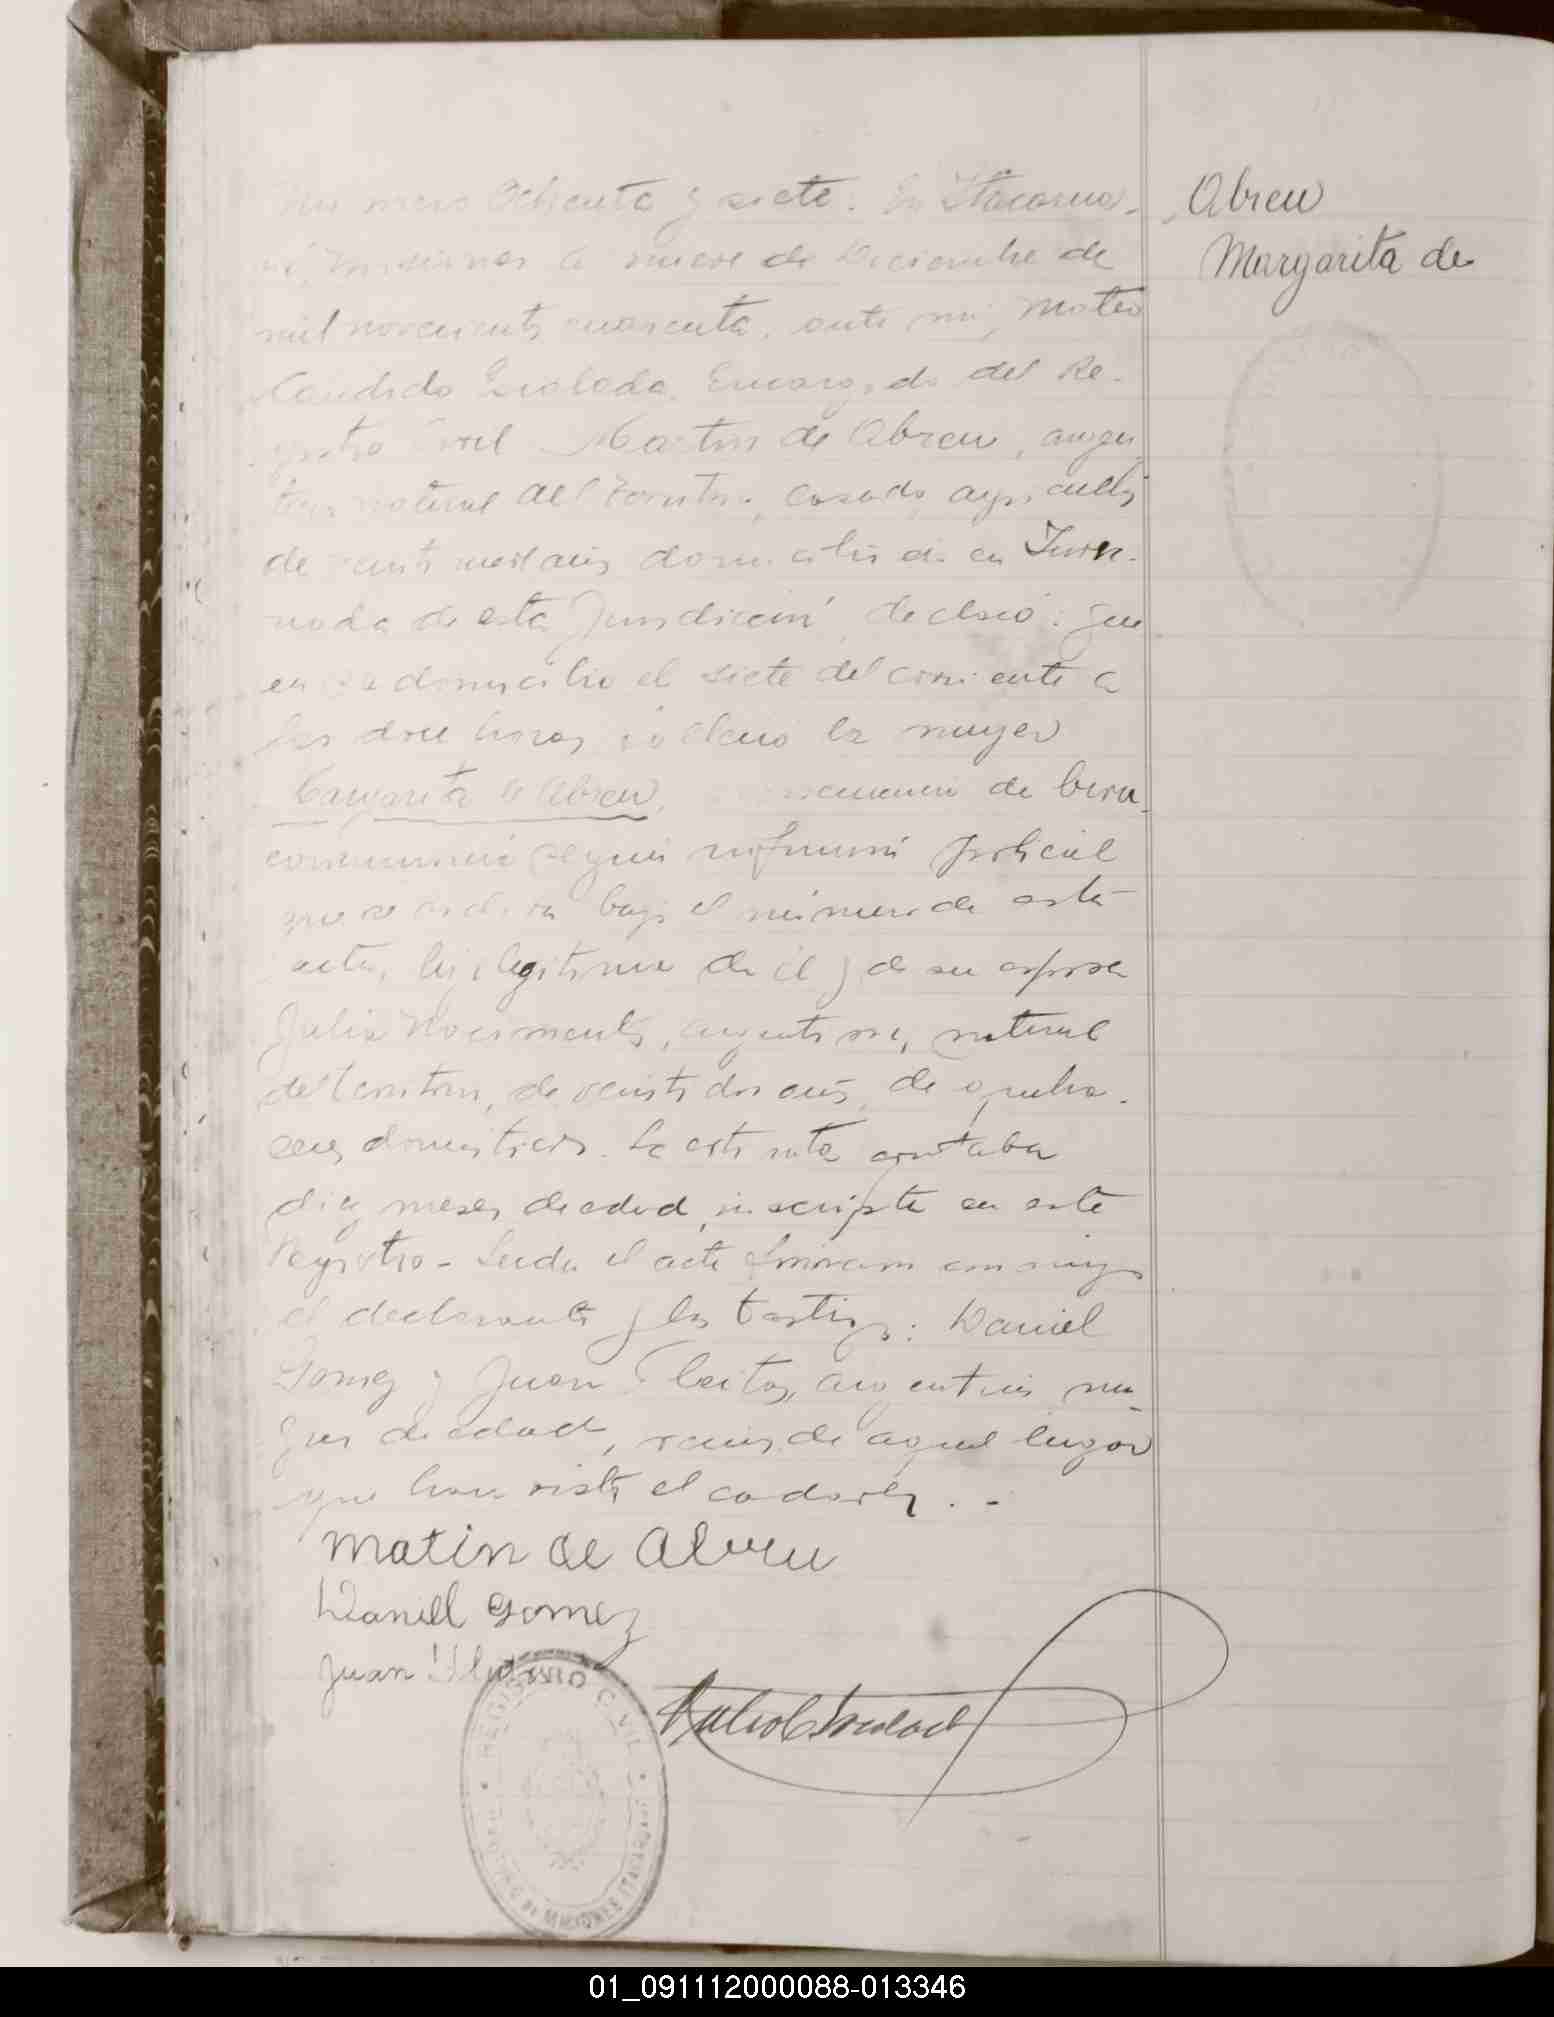 Numero Ochenta y siete: En Itacarua-
ré, Misiones a nueve de Diciembre de
mil novecientos cuarenta, ante mi, Mateo
Candido Encargado del Re-
gistro Civil Martin de Abreu, argen-
tino natural del Territorio, casado, agricultor
de años domiciliado en
de esta Jurisdicción, declaró: Que
en su domicilio el siete del corriente a
las doce horas falleció la mujer
Margarita de Abreu, de bron-
según policial
que se archiva bajo el número de esta
acta, hija legitima de él y de su esposa
Julia Nacimento, argentina, natural
del territorio, de veinte dos años, de queha-
ceres domésticos. La extinta contaba
diez meses de edad, inscripta en este
Registro - Leida el acta firmaron conmigo
el declarante y los testigos: Daniel
Gomez y Juan argentinos ma-
yores de edad, vecinos de aquel lugar
que han visto el cadaver. -
Matin de Abreu
Daniel Gomez
Juan
REGISTRO CIVIL
Abreu
Margarita de
01_091112000088-013346